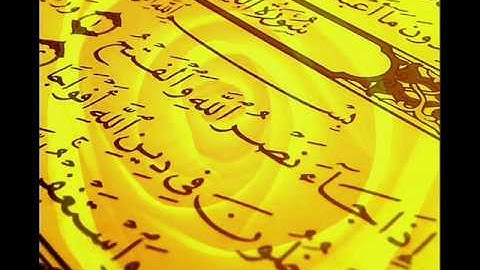 مَا أَعْبُ
سُورَةُ
بِسْمِ اللَّهِ
إِذَا جَآءَ نَصْرُ اللَّهِ وَالْفَتْحُ
خُلُونَ فِي دِينِ اللَّهِ أَفْوَاجًا
وَاسْتَغْفِ